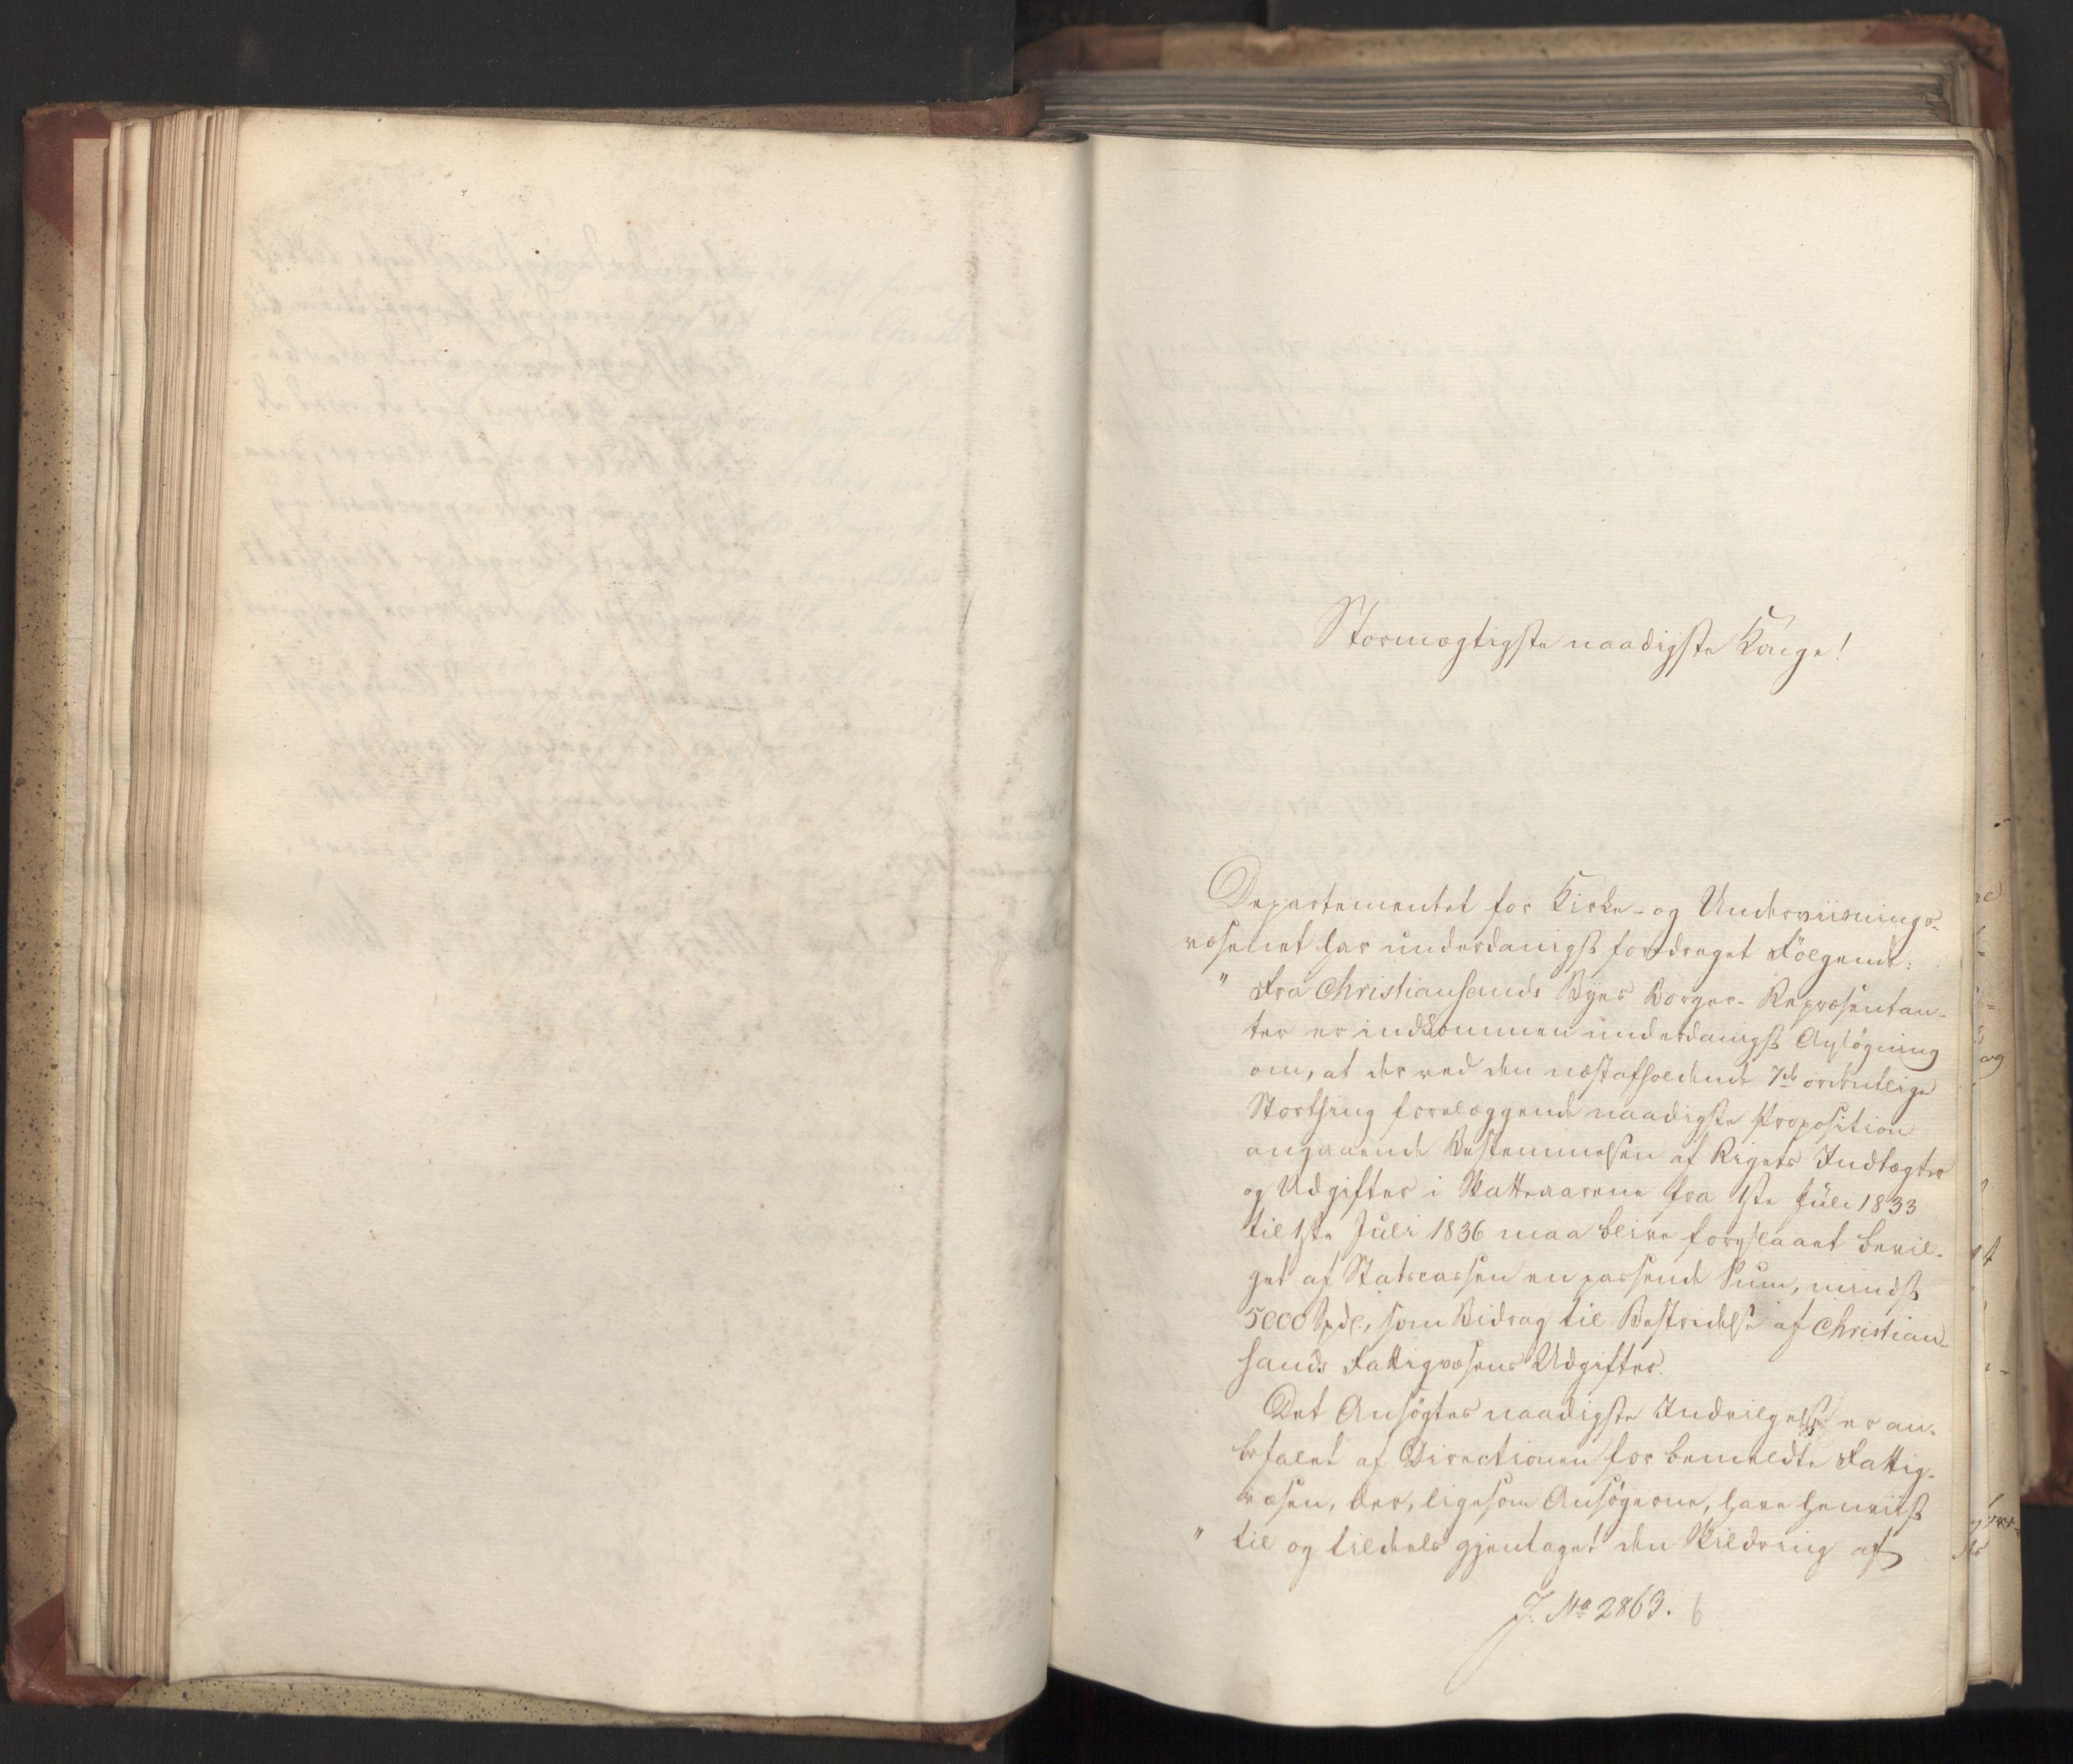 Stormægtigste naadigste Konge!
Departementet for Kirke- og Underviisnings-
væsenet har underdanigst foredraget Følgende:
" Fra Christiansands Byes Borger-Repræsentan-
ter er indkommen underdanigst Ansøgning
om, at der ved den næstafholdende 7de ordentlige
Storthing forelæggende naadigste Proposition
angaaende Bestemmelsen af Rigets Indtægter
og Udgifter i Skatteaarene fra 1ste Juli 1833
til 1ste Juli 1836 maa blive foreslaaet bevil-
get af Statscassen en passende Sum, mindst
5000 Spdl., som Bidrag til Bestridelse af Christian-
sands Fattigvæsens Udgifter.
Det Ansøgtes naadigste Indvilgelse er an-
befalet af Directionen for bemeldte Fattig-
væsen, der, ligesom Ansøgerne, have henviist
" til og tildeels gjentaget den Skildring af
J. No 2863. 6